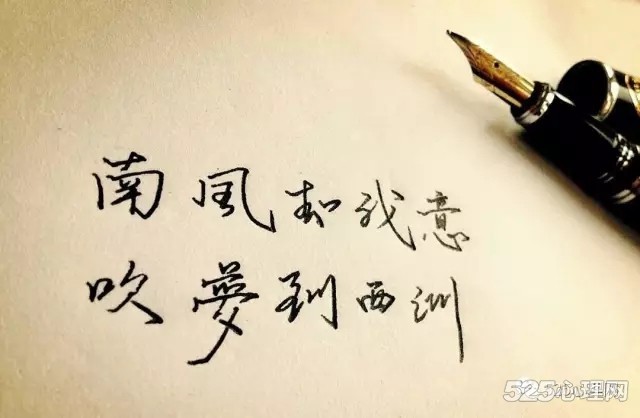 南風知我意
吹夢到西洲
525心理网